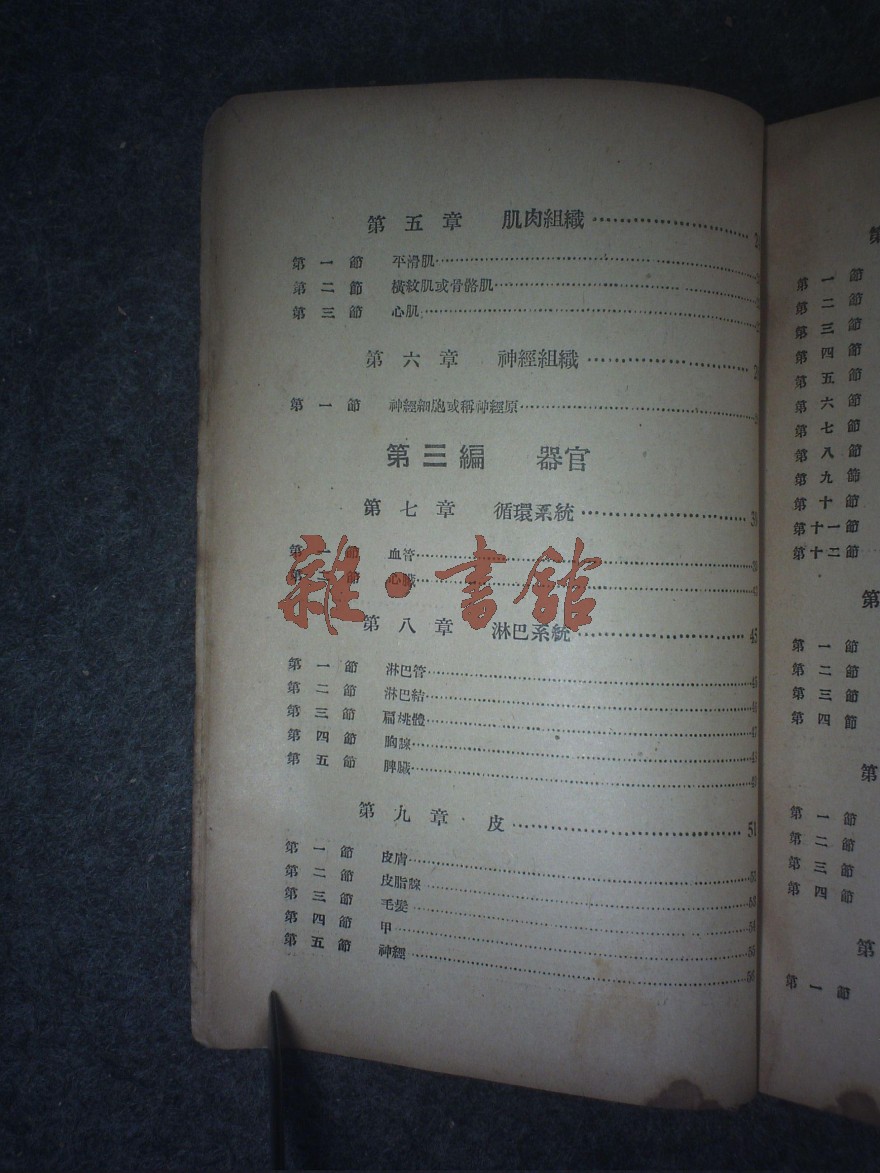 第五章 肌肉組織
第一節 平滑肌
第二節 橫紋肌或骨骼肌
第三節 心肌
第六章 神經組織
第一節 神經細胞或稱神經原
第三編 器官
第七章 循環系統
第一節 血管
第二節 心臟
雜·書館
第八章 淋巴系統 45
第一節 淋巴管
第二節 淋巴結
第三節 扁桃體 47
第四節 胸腺
第五節 脾臟
第九章 皮 51
第一節 皮膚
第二節 皮脂腺
第三節 毛髮
第四節 甲
第五節 神經
第
第一節
第二節
第三節
第四節
第五節
第六節
第七節
第八節
第九節
第十節
第十一節
第十二節
第
第一節
第二節
第三節
第四節
第
第一節
第二節
第三節
第四節
第
第一節